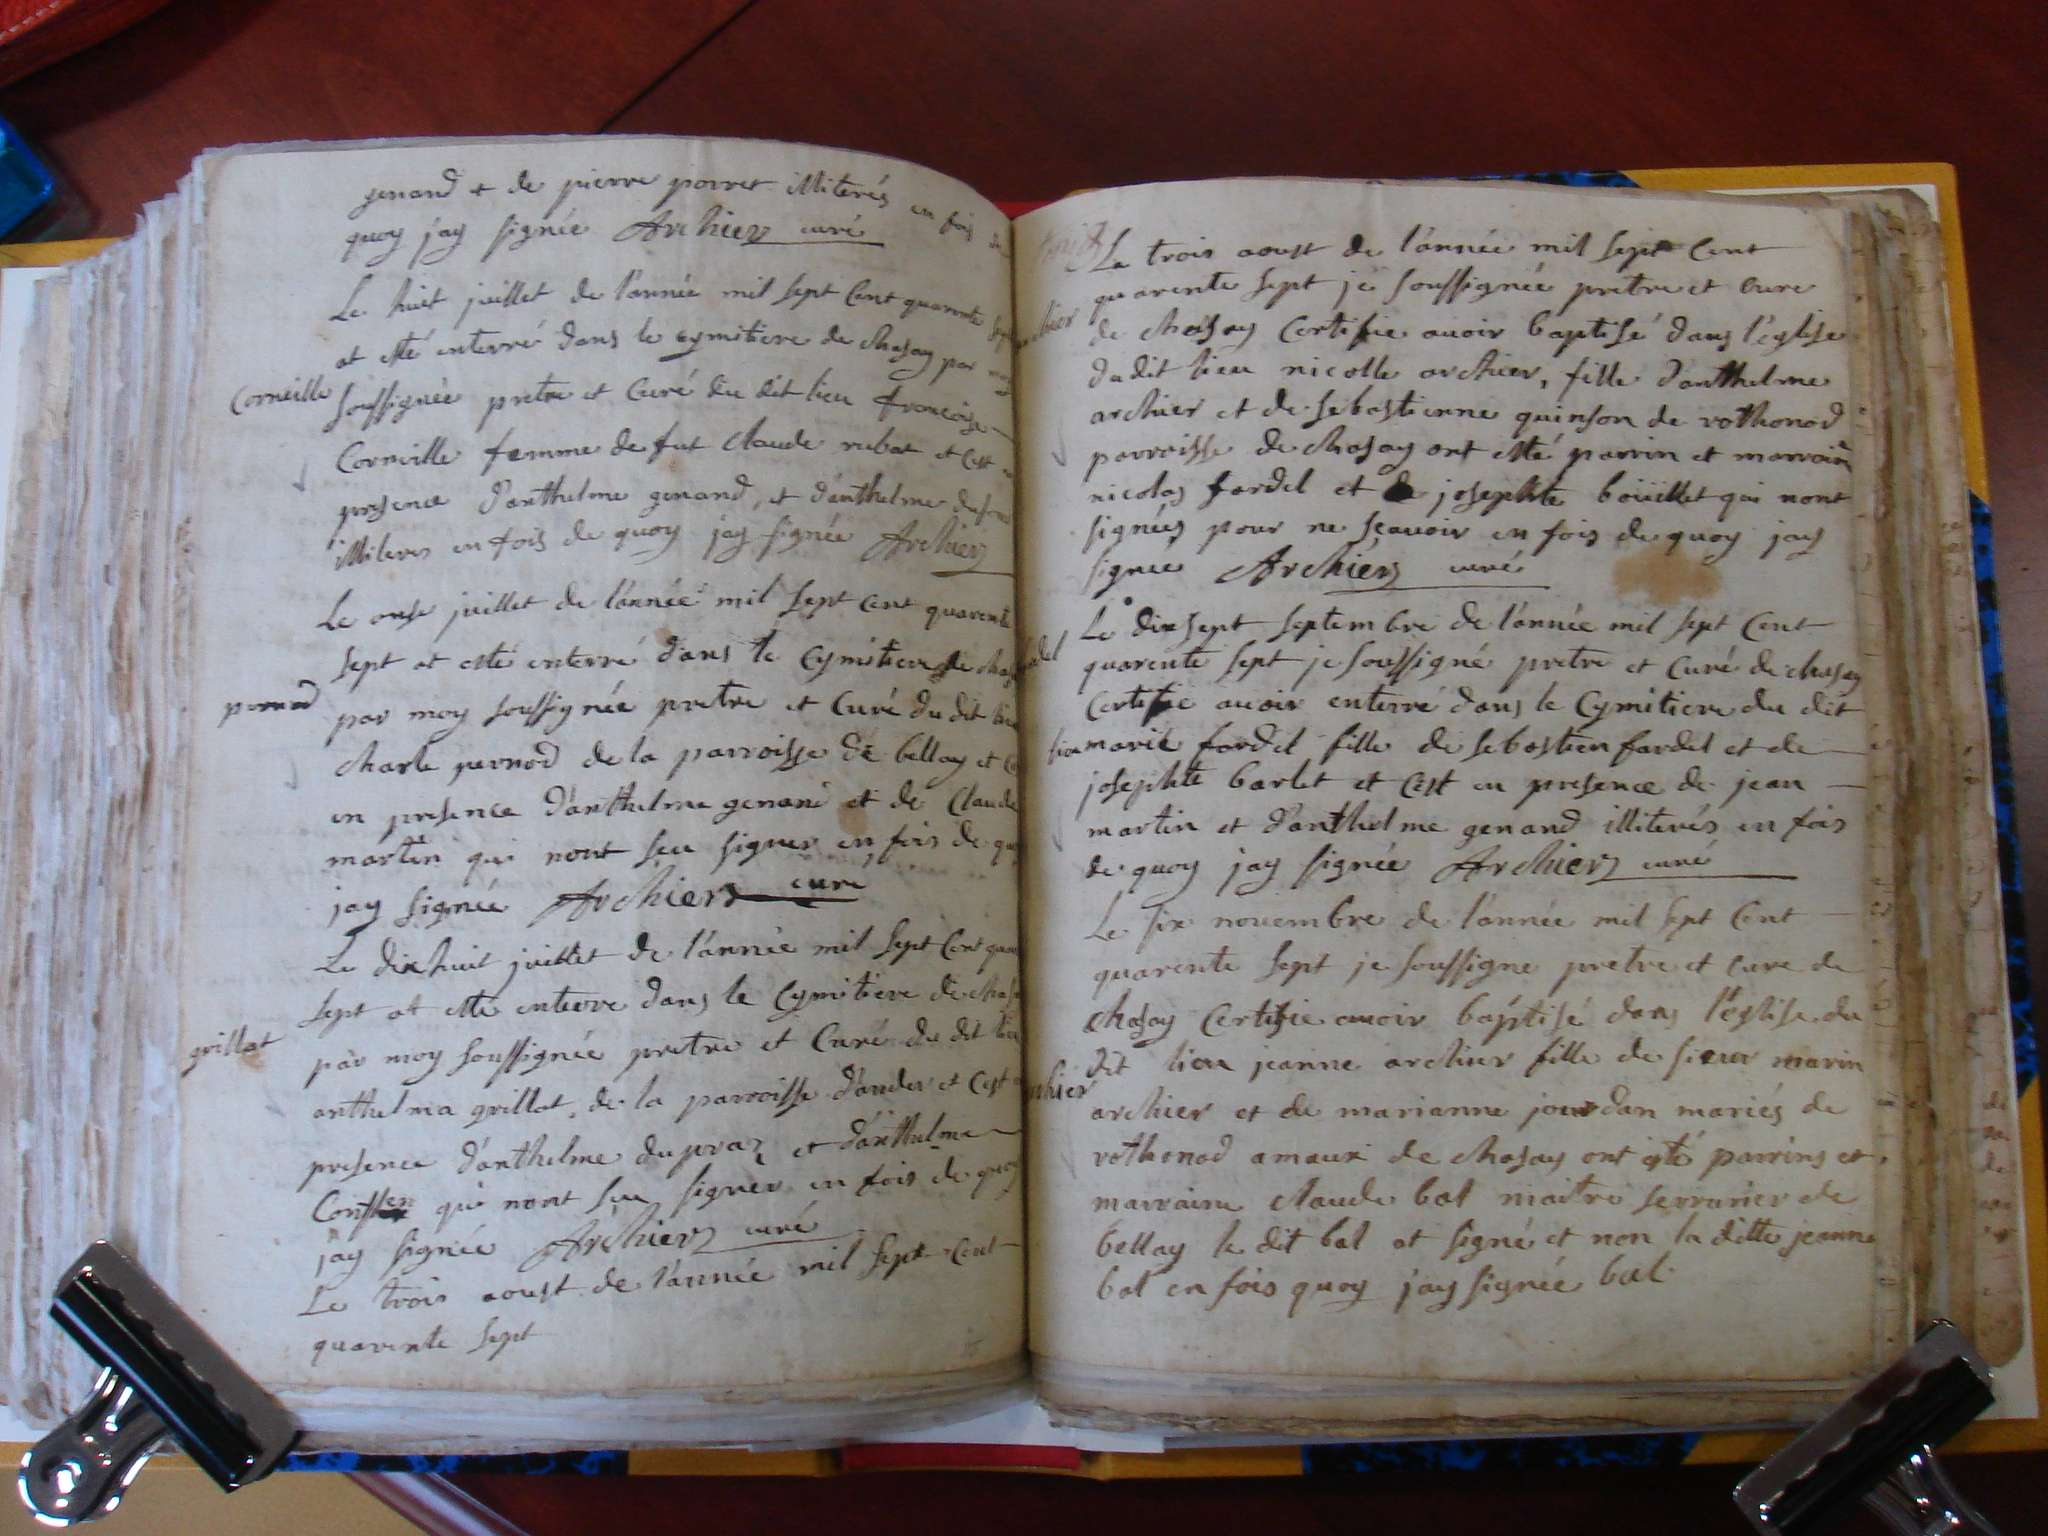 genand et de pierre porret illiterés en fois de
quoy jay signée Archier curé
Le huit juillet de l'année mil sept Cent quarente sept
at etté enterré dans le cymitiere de chasay par moy
Corneille
soussignée pretre et Curé du dit lieu francoise
Corneille femme de fut claude rubat et cest en
presence d'anthelme genand, et d'anthelme
illiteres en fois de quoy jay signée Archier
Le onse juillet de l'année mil sept cent quarente
sept at etté enterré dans le Cymitiere de
pernod
par moy soussignée pretre et Curé du dit lieu
charle pernod de la parroisse de bellay et
en presence d'anthelme genand et de Claude
martin qui nont seu signer en fois de quoy
jay signée Archier curé
Le dixhuit juillet de l'année mil sept Cent
sept at etté enterre dans le Cymitiere de
grillat
par moy soussignée pretre et Curé du dit lieu
anthelma grillat de la parroisse d'ander et cest
presence d'anthelme dupraz et d'anthelme
qui nont seu signer en fois de quoy
jay signée Archier curé
Le trois aoust de l'année mil sept cent
quarente sept
Le trois aoust de l'année mil sept Cent
quarente sept je soussignée pretre et Cure
de chasay Certifie avoir baptisé dans l'eglise
dudit lieu nicolle archier, fille d'anthelme
archier et de sebastienne quinson de rothonod
parroisse de chasay ont etté parrin et marrain
nicolas fardel et josephte boüillet qui nont
signées pour ne scavoir en fois de quoy jay
signée Archier curé
Le dixsept septembre de l'année mil sept Cent
quarente sept je soussigné pretre et Curé de chasay
Certifie avoir enterré dans le Cymitiere du dit
lieu marie fardel fille de sebastien fardel et de
josephte barlet et cest en presence de jean
martin et d'anthelme genand illiterés en fois
de quoy jay signée Archier curé
Le six novembre de l'année mil sept Cent
quarente sept je soussigne pretre et cure de
chasay Certifie avoir baptisé dans l'eglise du
dit lieu jeanne archier fille de sieur marin
archier
archier et de marianne jourdan mariés de
rothonod amaux de chasay ont eté parrins et
marraine claude bal maitre serrurier de
bellay le dit bal at signé et non la ditte jeanne
bal en fois quoy jay signée bal